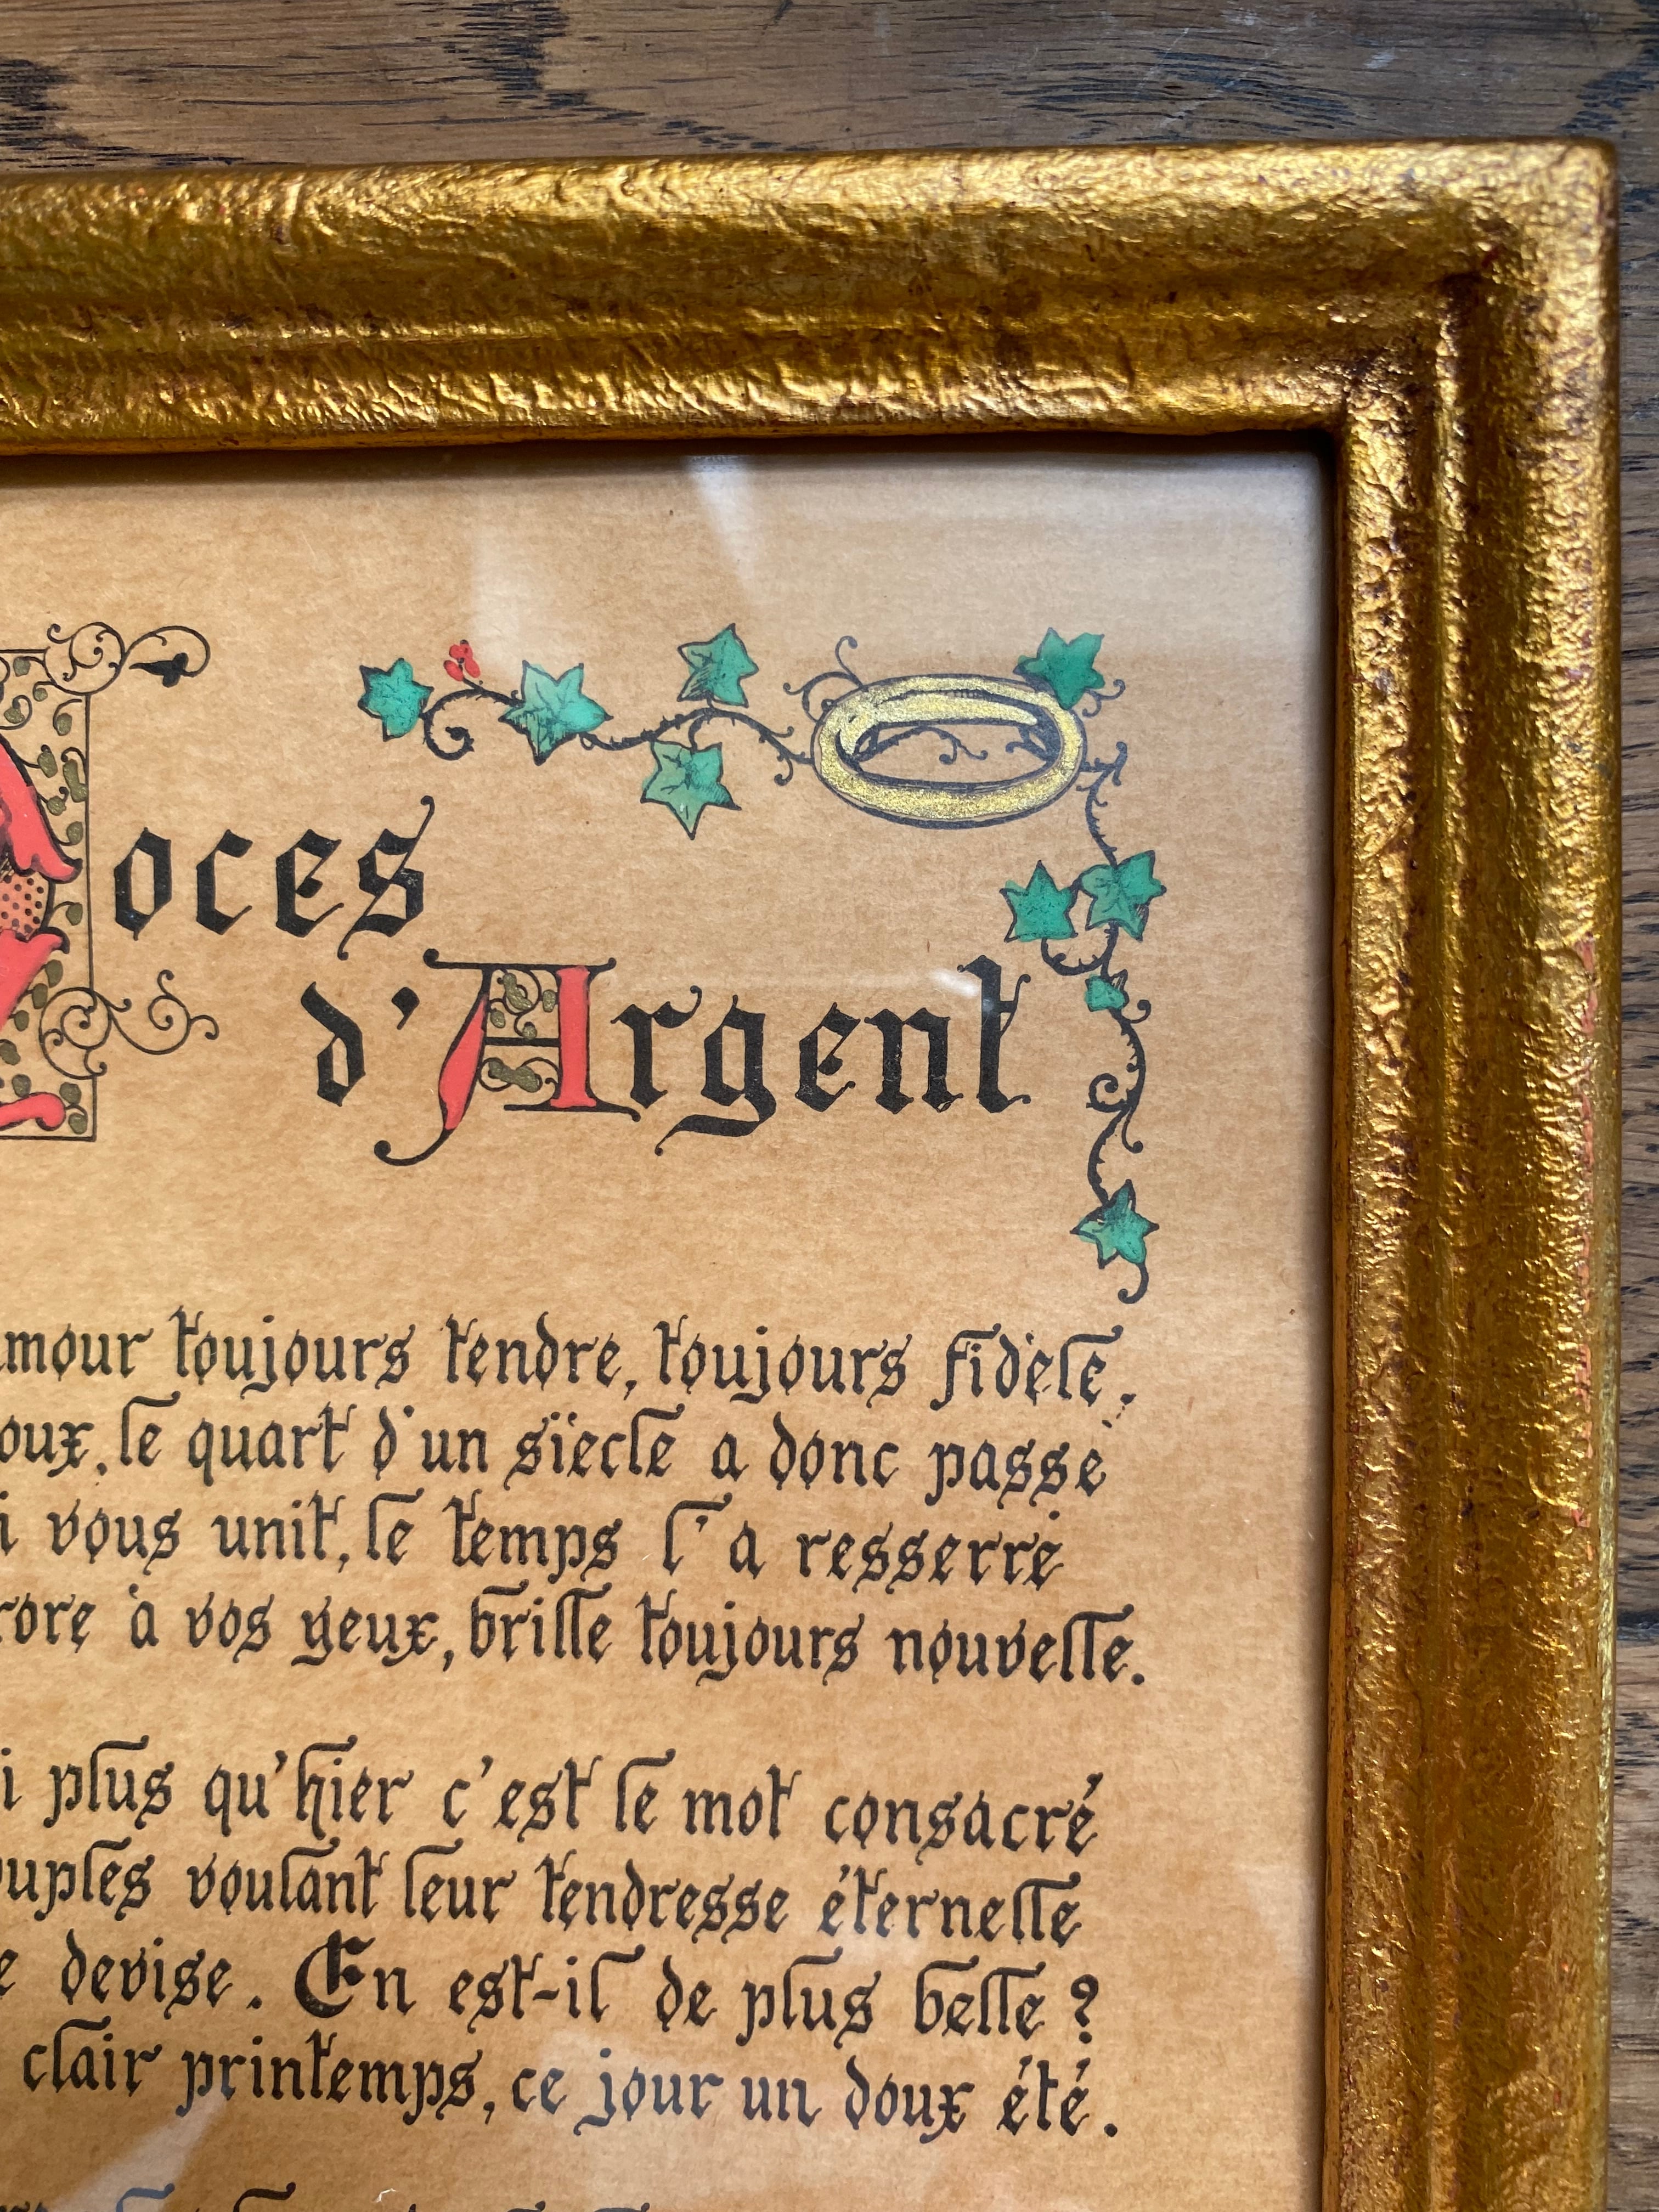 Noces
d'Argent
amour toujours tendre, toujours fidèle,
oux, le quart d'un siècle a donc passé
i vous unit, le temps l'a resserré
rore à vos yeux, brille toujours nouvelle.
i plus qu'hier c'est le mot consacré
ouples voulant leur tendresse éternelle
e devise. En est-il de plus belle ?
clair printemps, ce jour un doux été.